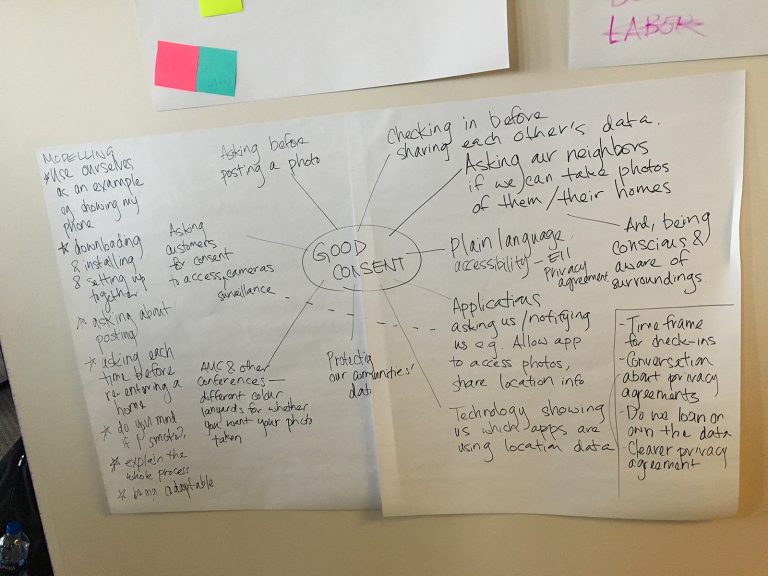 LABOR
MODELLING
* Use ourselves
as an example
eg showing my
phone
* downloading
& installing
& setting up
together
* asking about
posting
* asking each
time before
re-entering a
home
* do you mind
if I
* explain the
whole process
* being adaptable
Asking before
posting a photo
Checking in before
sharing each other's data.
Asking our neighbors
if we can take photos
of them/their homes
And, being
conscious &
aware of
surroundings.
GOOD
CONSENT
Asking
customers
for consent
to access cameras
surveillance
Plain language
accessibility -
Privacy
agreement
Applications
asking us/notifying
us eg. Allow app
to access photos,
share location info
AMC & other
conferences -
different colour
lanyards for whether
you want your photo
taken
Protecting
our communities'
data
Technology showing
us which apps are
using location data
- Time frame
for check-ins
- Conversation
about privacy
agreements
- Do we loan or
own the data
- Clearer privacy
agreement